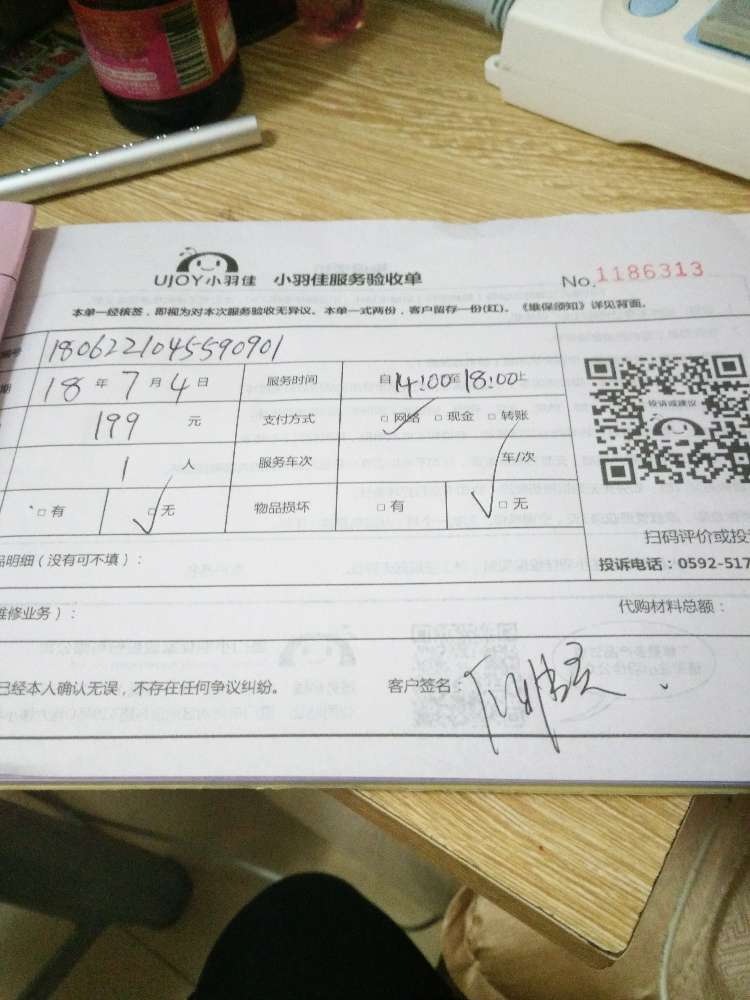 UJOY小羽佳 小羽佳服务验收单 No.1186313
本单一经核签，即视为对本次服务验收无异议。本单一式两份，客户留存一份(红)。《维保须知》详见背面。
号 1806221045590901
期 18 年 7 月 4 日 服务时间 自14:00至18:00止
199 元 支付方式 □网络 □现金 □转账
1 人 服务车次 车/次
□有 □无 物品损坏 □有 □无
投诉或建议
扫码评价或投
品明细（没有可不填）：
投诉电话：0592-517
维修业务）： 代购材料总额：
已经本人确认无误，不存在任何争议纠纷。 客户签名：